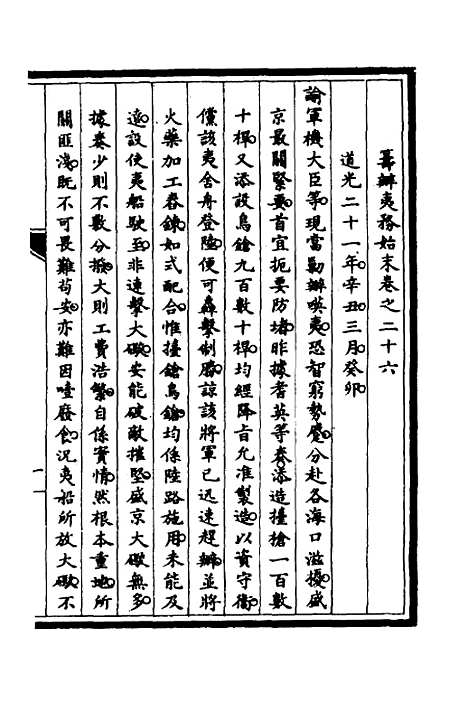 籌辦夷務始末卷之二十六
道光二十一年辛丑三月癸卯
諭軍機大臣等現當勦辦嘆夷恐智窮勢蹙分赴各海口滋擾盛
京最關緊要首宜扼要防堵昨據耆英等奏添造擡槍一百數
十桿又添設鳥鎗九百數十桿均經降旨允准製造以資守衞
儻該夷舍舟登陸便可轟擊制勝諒該將軍已迅速趕辦並將
火藥加工舂鍊如式配合惟擡鎗鳥鎗均係陸路施用未能及
遠設使夷船駛至非連擊大礮安能破敵摧堅盛京大礮無多
據奏少則不敷分撥大則工費浩繁自係實情然根本重地所
關匪淺既不可畏難苟安亦難因噎廢食況夷船所放大礮不